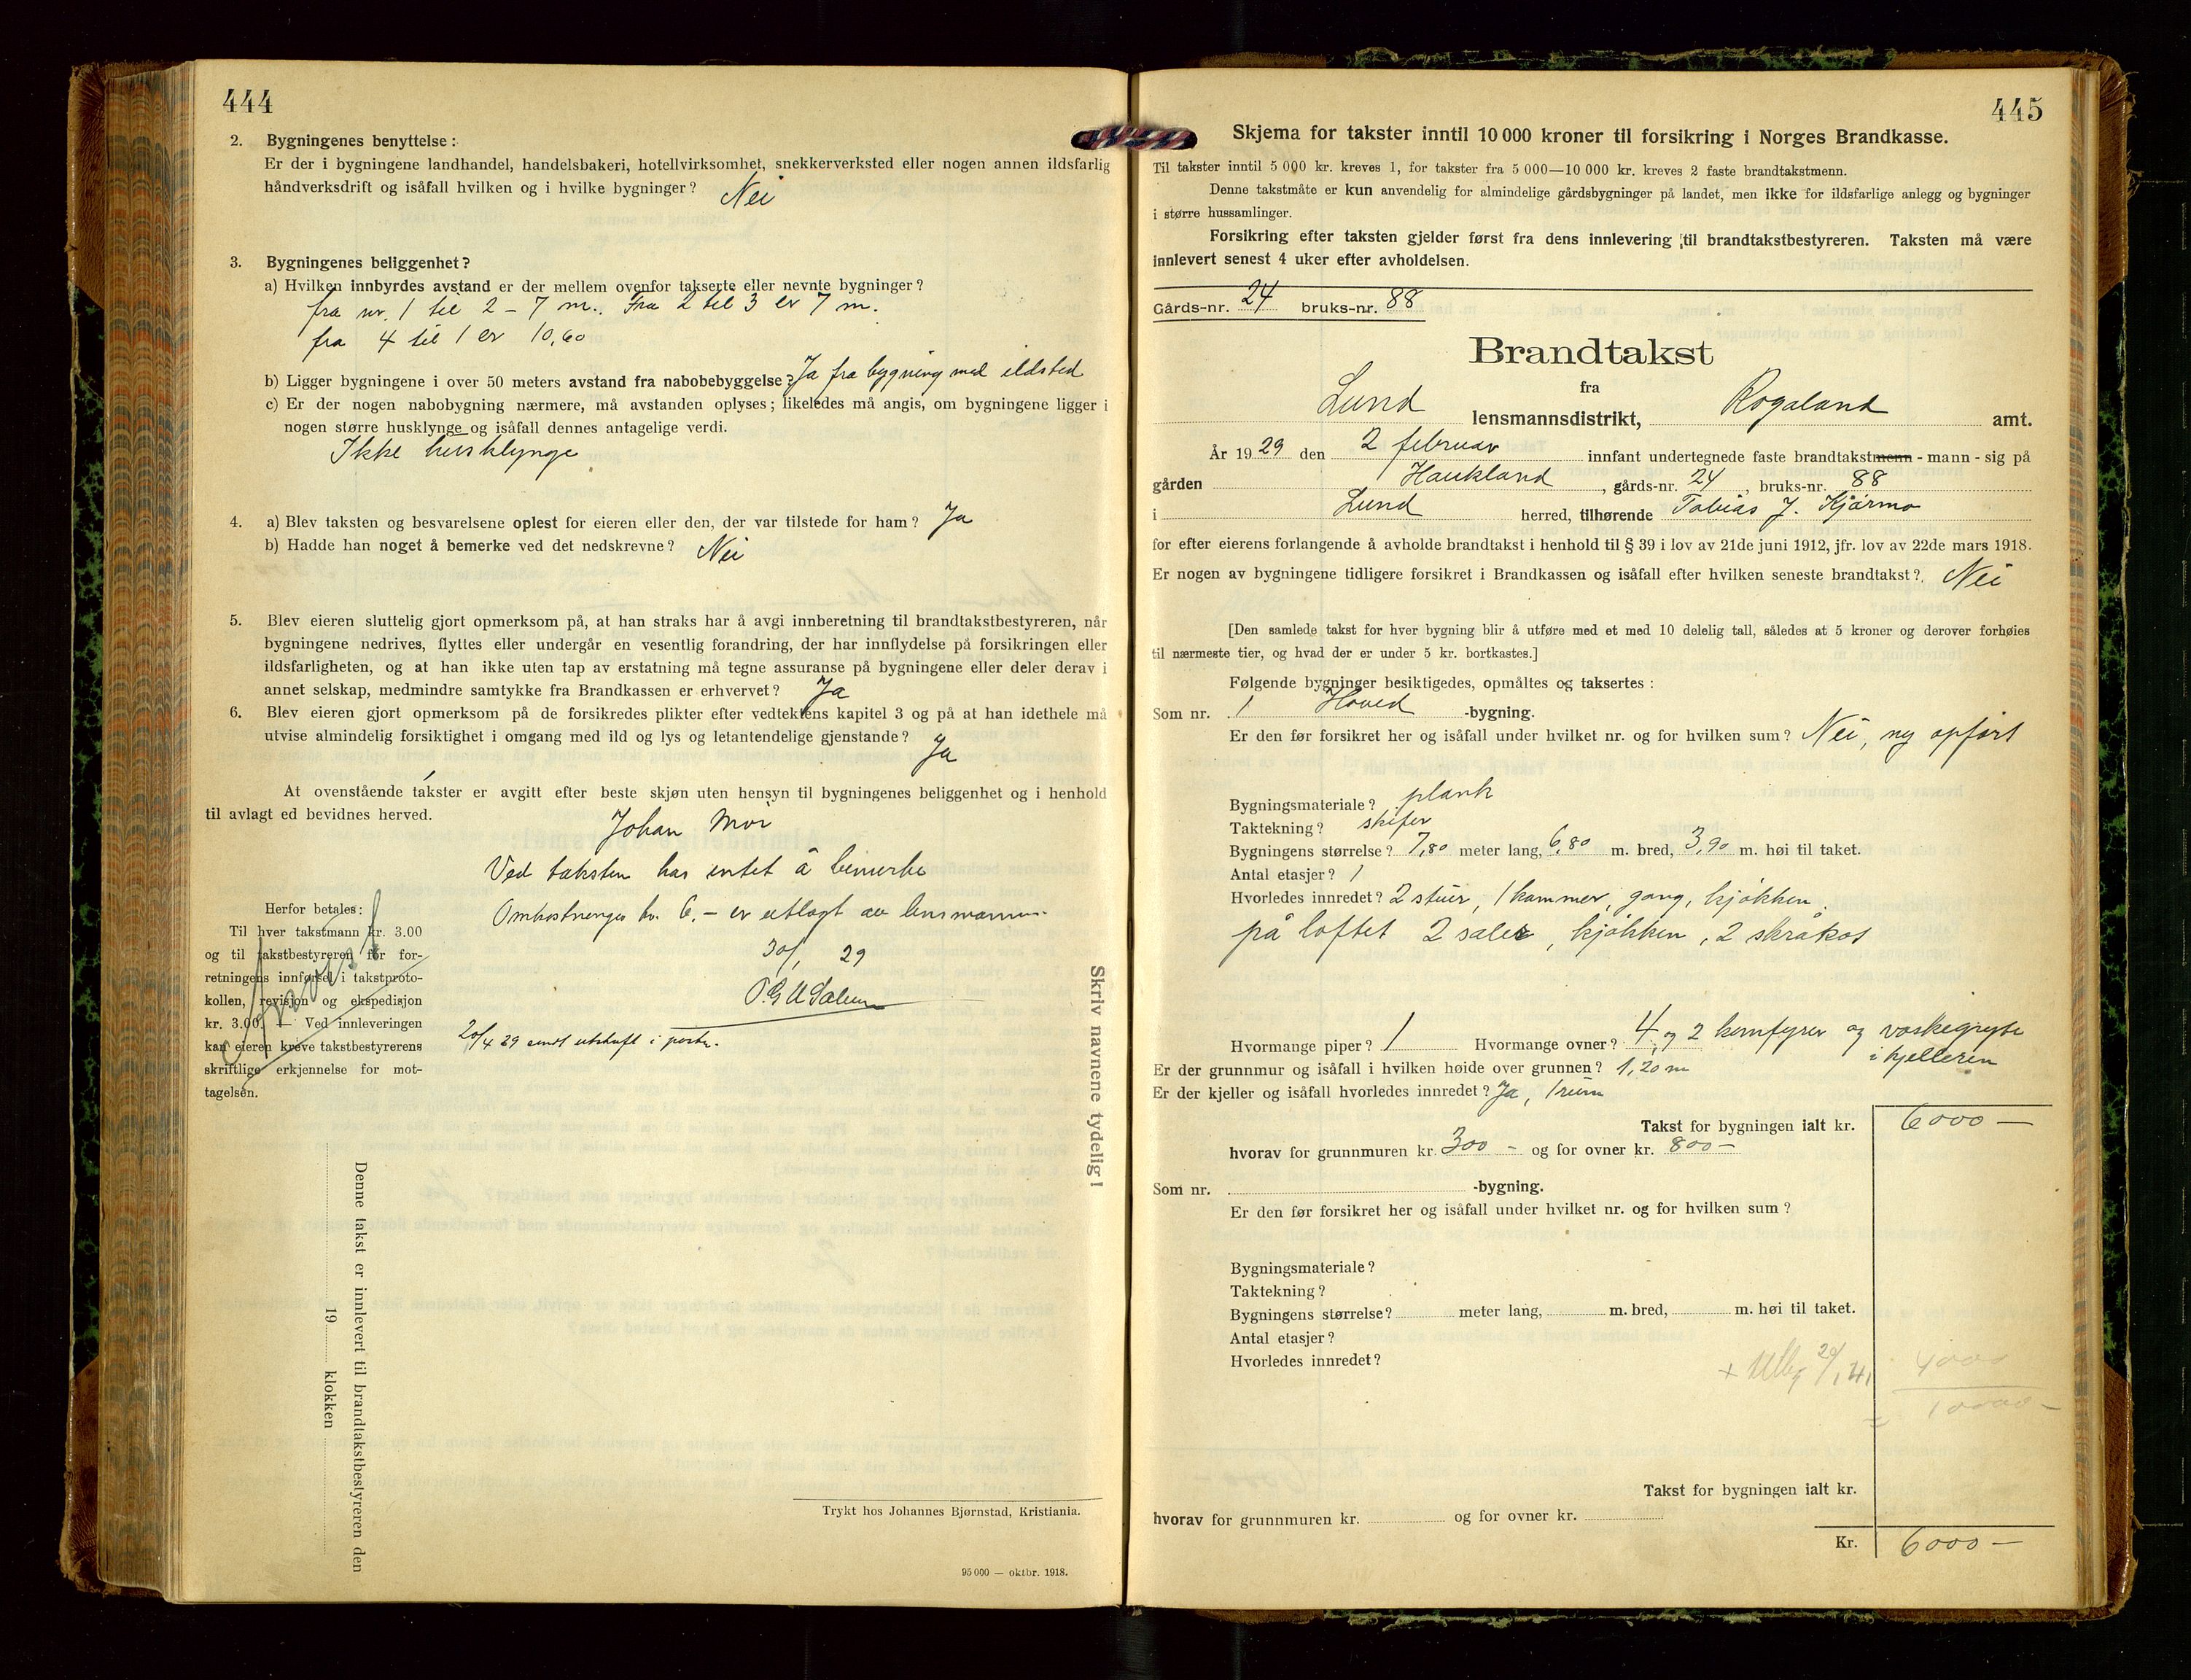 444
2. Bygningenes benyttelse:
Er der i bygningene landhandel, handelsbakeri, hotellvirksomhet, snekkerverksted eller nogen annen ildsfarlig
håndverksdrift og isåfall hvilken og i hvilke bygninger? Nei
3. Bygningenes beliggenhet?
a) Hvilken innbyrdes avstand er der mellem ovenfor takserte eller nevnte bygninger?
fra nr. 1 til 2 – 7 m. Fra 2 til 3 er 7 m.
fra 4 til 1 er 10,60
b) Ligger bygningene i over 50 meters avstand fra nabobebyggelse? Ja fra bygning med ildsted
c) Er der nogen nabobygning nærmere, må avstanden oplyses; likeledes må angis, om bygningene ligger i
nogen større husklynge og isåfall dennes antagelige verdi.
Ikke husklynge
4. a) Blev taksten og besvarelsene oplest for eieren eller den, der var tilstede for ham? Ja
b) Hadde han noget å bemerke ved det nedskrevne? Nei
5. Blev eieren sluttelig gjort opmerksom på, at han straks har å avgi innberetning til brandtakstbestyreren, når
bygningene nedrives, flyttes eller undergår en vesentlig forandring, der har innflydelse på forsikringen eller
ildsfarligheten, og at han ikke uten tap av erstatning må tegne assuranse på bygningene eller deler derav i
annet selskap, medmindre samtykke fra Brandkassen er erhvervet? Ja
6. Blev eieren gjort opmerksom på de forsikredes plikter efter vedtektens kapitel 3 og på at han idethele må
utvise almindelig forsiktighet i omgang med ild og lys og letantendelige gjenstande? Ja
At ovenstående takster er avgitt efter beste skjøn uten hensyn til bygningenes beliggenhet og i henhold
til avlagt ed bevidnes herved.
Johan Moi
Ved taksten har intet å bemerke
Omkostninger kr. 6,– er utlagt av lensmannen.
30/1 29
20/4 29 sendt utskrift i posten.
Herfor betales:
Til hver takstmann kr. 3.00
og til takstbestyreren for for-
retningens innførsel i takstproto-
kollen, revisjon og ekspedisjon
kr. 3.00. — Ved innleveringen
kan eieren kreve takstbestyrerens
skriftlige erkjennelse for mot-
tagelsen.
Denne takst er innlevert til brandtakstbestyreren den
19 klokken
Skriv navnene tydelig!
Trykt hos Johannes Bjørnstad, Kristiania.
95 000 — oktbr. 1918.
445
Skjema for takster inntil 10 000 kroner til forsikring i Norges Brandkasse.
Til takster inntil 5 000 kr. kreves 1, for takster fra 5 000—10 000 kr. kreves 2 faste brandtakstmenn.
Denne takstmåte er kun anvendelig for almindelige gårdsbygninger på landet, men ikke for ildsfarlige anlegg og bygninger
i større hussamlinger.
Forsikring efter taksten gjelder først fra dens innlevering til brandtakstbestyreren. Taksten må være
innlevert senest 4 uker efter avholdelsen.
Gårds-nr. 24 bruks-nr. 88
Brandtakst
fra
Lund lensmannsdistrikt, Rogaland amt.
År 1929 den 2 februar innfant undertegnede faste brandtakstmenn - mann - sig på
gården Haukland, gårds-nr. 24, bruks-nr. 88
i Lund herred, tilhørende Tobias J. Kjørmo
for efter eierens forlangende å avholde brandtakst i henhold til § 39 i lov av 21de juni 1912, jfr. lov av 22de mars 1918.
Er nogen av bygningene tidligere forsikret i Brandkassen og isåfall efter hvilken seneste brandtakst? Nei
[Den samlede takst for hver bygning blir å utføre med et med 10 delelig tall, således at 5 kroner og derover forhøies
til nærmeste tier, og hvad der er under 5 kr. bortkastes.]
Følgende bygninger besiktigedes, opmåltes og taksertes:
Som nr. 1 Hoved -bygning.
Er den før forsikret her og isåfall under hvilket nr. og for hvilken sum? Nei, ny opført
Bygningsmateriale? plank
Taktekning? skifer
Bygningens størrelse? 7,80 meter lang, 6,80 m. bred, 3,90 m. høi til taket.
Antal etasjer? 1
Hvorledes innredet? 2 stuer, 1 kammer, gang, kjøkken.
på loftet 2 saler, kjøkken, 2 skråkot
Hvormange piper? 1 Hvormange ovner? 4, og 2 komfyrer og vaskegryte
i kjelleren
Er der grunnmur og isåfall i hvilken høide over grunnen? 1,20 m
Er der kjeller og isåfall hvorledes innredet? Ja, 1 rum
Takst for bygningen ialt kr. 6000 —
hvorav for grunnmuren kr. 300 – og for ovner kr. 800 –
Som nr. -bygning.
Er den før forsikret her og isåfall under hvilket nr. og for hvilken sum?
Bygningsmateriale?
Taktekning?
Bygningens størrelse? meter lang, m. bred, m. høi til taket.
Antal etasjer?
Hvorledes innredet?
4000
= 10000 –
Takst for bygningen ialt kr.
hvorav for grunnmuren kr. og for ovner kr.
Kr. 6000 –